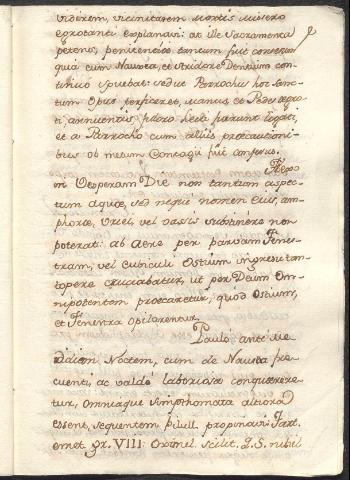 viderem, vicinitatem Mortis misero
egrotanti explanavi: at ille Sacramenta
petens, penitencia tantum fuit concessa
quia cum Nausea, et stridore Dentium con-
tinuo spuebat: sed ut Parrochus hoc sanc-
tum Opus perficeret, manus, et Pedes egro-
ti, annuentis plexo licia fuerunt ligati,
et a Parrocho cum aliis precautioni-
bus ob metum Contagii fuit confessus.
in Vesperam Die non tantum aspec-
tum aquæ, sed neque nomen Eius, am-
phoræ, Urcei, vel vassis sustinere non
poterat: ab Aere per parvam Fenes-
tram, vel Cubiculi Ostium ingresu tan-
topere cruciabatur, ut per Deum Om-
nipotentem præcaretur, quod Ostium,
et Fenestra opilarentur.
Paulò antè me
diam Noctem, cum de Nausea fre
cuenti, ac valdè laboriosa conquærere-
tur, omniaque Simphomata altiora
essent, sequentem pilull. propinavi: Tart.
emet. gr. VIII: Oximel scilit. Q.S. nihil